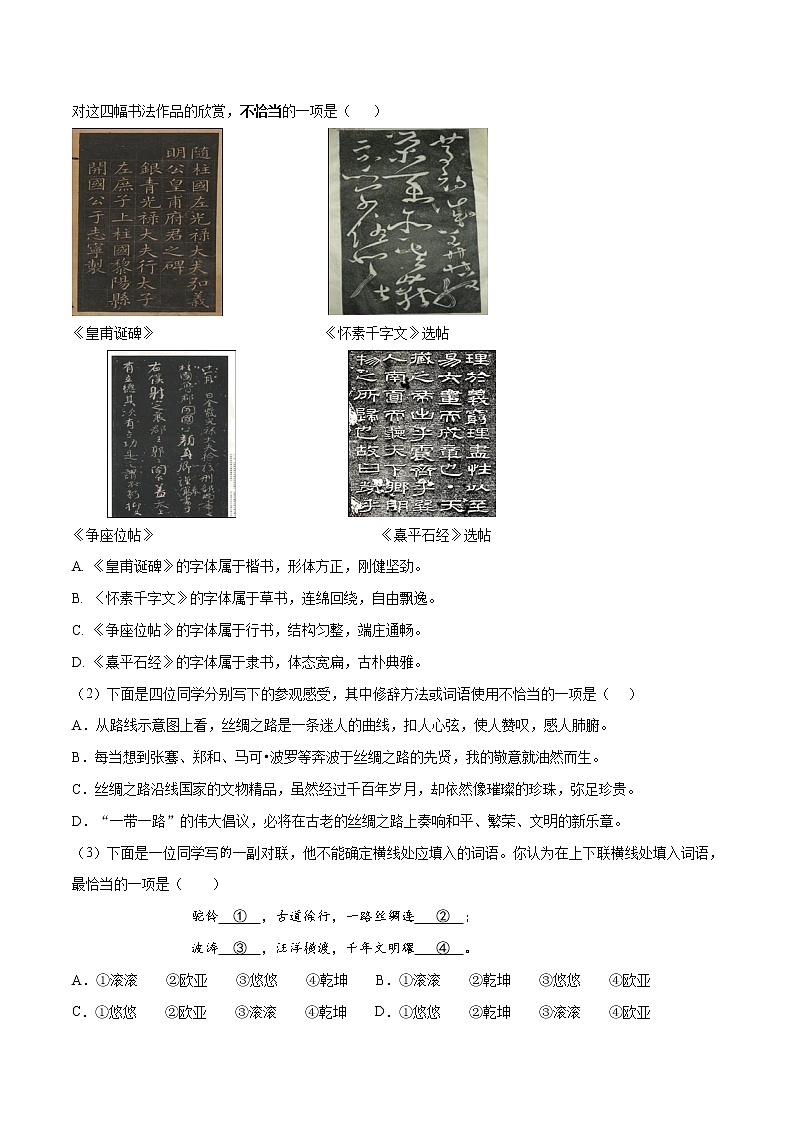 对这四幅书法作品的欣赏，不恰当的一项是（　）
随柱國左光禄大夫弘義
明公皇甫府君之碑
銀青光禄大夫行太子
左庶子上柱國黎陽縣
開國公于志寧製
《皇甫诞碑》 《怀素千字文》选帖
理於義窮理盡性以至
易六畫而成章也·天
人南面而聽天下嚮明
《争座位帖》 《熹平石经》选帖
A. 《皇甫诞碑》的字体属于楷书，形体方正，刚健坚劲。
B. 〈怀素千字文》的字体属于草书，连绵回绕，自由飘逸。
C. 《争座位帖》的字体属于行书，结构匀整，端庄通畅。
D. 《熹平石经》的字体属于隶书，体态宽扁，古朴典雅。
（2）下面是四位同学分别写下的参观感受，其中修辞方法或词语使用不恰当的一项是（　）
A．从路线示意图上看，丝绸之路是一条迷人的曲线，扣人心弦，使人赞叹，感人肺腑。
B．每当想到张骞、郑和、马可•波罗等奔波于丝绸之路的先贤，我的敬意就油然而生。
C．丝绸之路沿线国家的文物精品，虽然经过千百年岁月，却依然像璀璨的珍珠，弥足珍贵。
D．“一带一路”的伟大倡议，必将在古老的丝绸之路上奏响和平、繁荣、文明的新乐章。
（3）下面是一位同学写的一副对联，他不能确定横线处应填入的词语。你认为在上下联横线处填入词语，
最恰当的一项是（　）
驼铃 ① ，古道徐行，一路丝绸连 ② ；
波涛 ③ ，汪洋横渡，千年文明耀 ④ 。
A．①滚滚 ②欧亚 ③悠悠 ④乾坤 B．①滚滚 ②乾坤 ③悠悠 ④欧亚
C．①悠悠 ②欧亚 ③滚滚 ④乾坤 D．①悠悠 ②乾坤 ③滚滚 ④欧亚